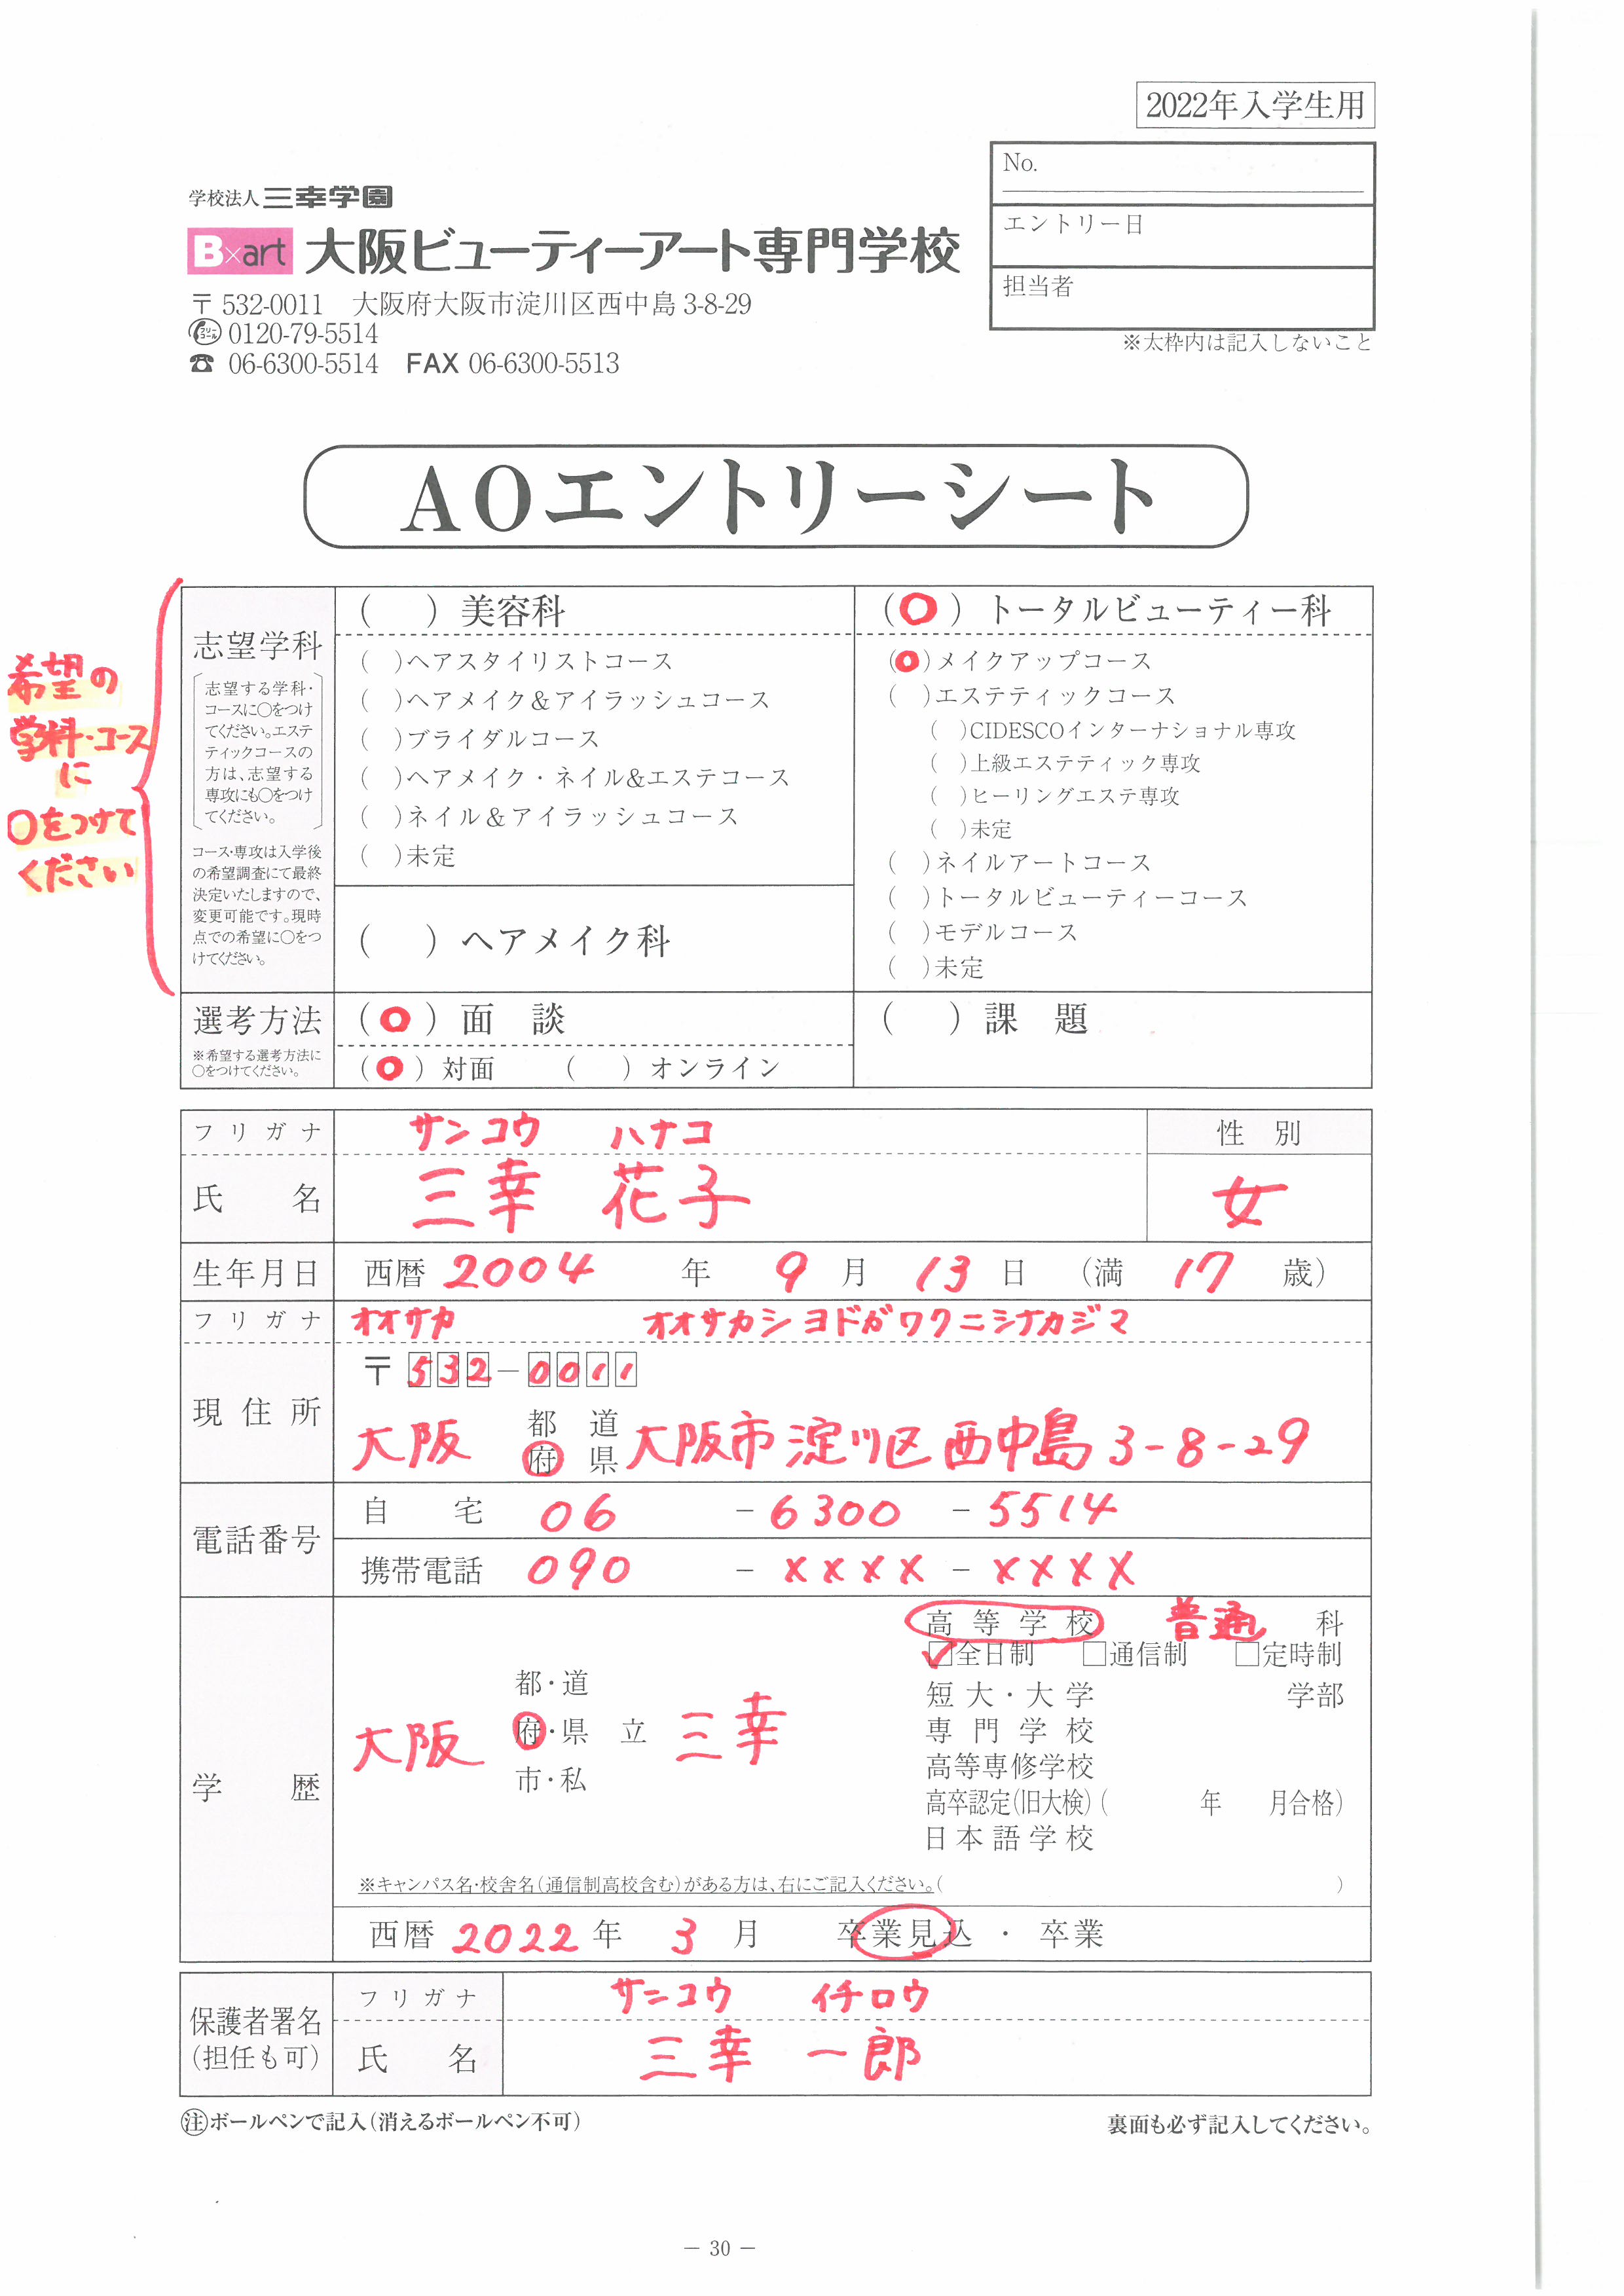 2022年入学生用
No.
エントリー日
担当者
※太枠内は記入しないこと
学校法人 三幸学園
B×art 大阪ビューティーアート専門学校
〒532-0011 大阪府大阪市淀川区西中島3-8-29
フリーコール 0120-79-5514
☎ 06-6300-5514 FAX 06-6300-5513
AOエントリーシート
希望の
学科・コース
に
○をつけて
ください
志望学科
志望する学科・
コースに○をつけ
てください。エステ
ティックコースの
方は、志望する
専攻にも○をつけ
てください。
コース・専攻は入学後
の希望調査にて最終
決定いたしますので、
変更可能です。現時
点での希望に○をつ
けてください。
( ) 美容科
( )ヘアスタイリストコース
( )ヘアメイク&アイラッシュコース
( )ブライダルコース
( )ヘアメイク・ネイル&エステコース
( )ネイル&アイラッシュコース
( )未定
( ) ヘアメイク科
(○) トータルビューティー科
(○)メイクアップコース
( )エステティックコース
( )CIDESCOインターナショナル専攻
( )上級エステティック専攻
( )ヒーリングエステ専攻
( )未定
( )ネイルアートコース
( )トータルビューティーコース
( )モデルコース
( )未定
選考方法
※希望する選考方法に
○をつけてください。
(○) 面 談
(○) 対面 ( ) オンライン
( ) 課 題
フリガナ サンコウ ハナコ
性 別
氏 名 三幸 花子
女
生年月日 西暦 2004 年 9 月 13 日 (満 17 歳)
フリガナ オオサカ オオサカシヨドガワクニシナカジマ
現住所 〒532-0011
大阪 都 道 府 県 大阪市淀川区西中島3-8-29
電話番号
自 宅 06 - 6300 - 5514
携帯電話 090 - ×××× - ××××
学 歴
大阪 都・道 府・県 市・私 立 三幸
高等学校 普通 科
☑全日制 □通信制 □定時制
短大・大学 学部
専門学校
高等専修学校
高卒認定(旧大検)( 年 月合格)
日本語学校
※キャンパス名・校舎名(通信制高校含む)がある方は、右にご記入ください。( )
西暦 2022 年 3 月 卒業見込 ・ 卒業
保護者署名
(担任も可)
フリガナ サンコウ イチロウ
氏 名 三幸 一郎
注ボールペンで記入(消えるボールペン不可)
裏面も必ず記入してください。
− 30 −